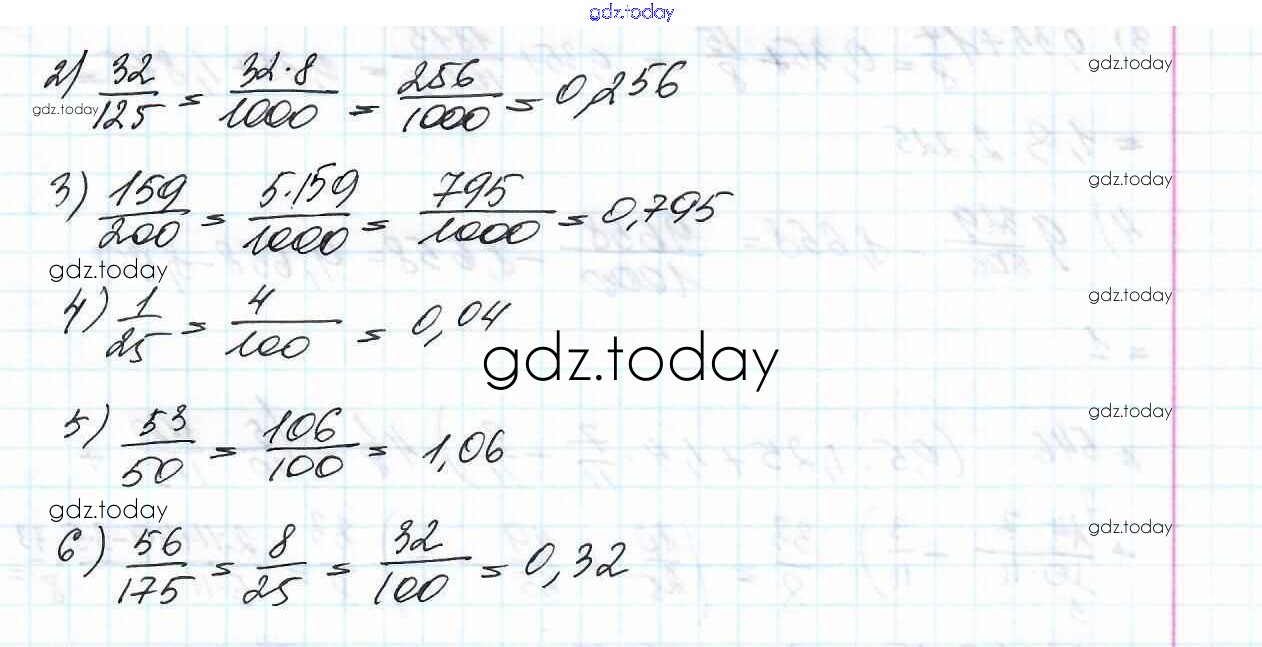 gdz.today
2) 32/125 = 32·8/1000 = 256/1000 = 0,256
gdz.today
gdz.today
3) 159/200 = 5·159/1000 = 795/1000 = 0,795
gdz.today
gdz.today
4) 1/25 = 4/100 = 0,04
gdz.today
gdz.today
5) 53/50 = 106/100 = 1,06
gdz.today
gdz.today
6) 56/175 = 8/25 = 32/100 = 0,32
gdz.today